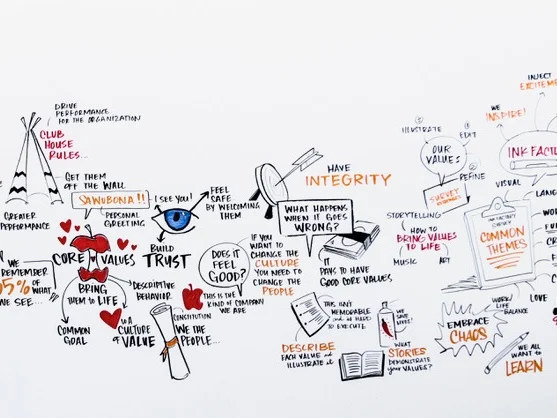 DRIVE
PERFORMANCE
FOR THE ORGANIZATION
CLUB
HOUSE
RULES...
GET THEM
OFF THE WALL
GREATER
PERFORMANCE
SAWUBONA!!
PERSONAL
GREETING
I SEE YOU!
FEEL
SAFE
BY WELCOMING
THEM
BUILD
TRUST
WE
REMEMBER
OF WHAT
WE SEE...
CORE VALUES
BRING
THEM TO LIFE
DESCRIPTIVE
BEHAVIOR.
COMMON
GOAL
A
CULTURE
OF VALUE
DOES IT
FEEL
GOOD?
THIS IS THE
KIND OF COMPANY
WE ARE
CONSTITUTION
WE THE
PEOPLE...
IF YOU
WANT TO
CHANGE THE
CULTURE
YOU NEED TO
CHANGE THE
PEOPLE
HAVE
INTEGRITY
WHAT HAPPENS
WHEN IT GOES
WRONG?
IT
PAYS TO HAVE
GOOD CORE VALUES
THIS ISN'T
MEMORABLE
AND IS HARD
TO EXECUTE.
DESCRIBE
EACH VALUE AND
ILLUSTRATE IT
WE
SAVE
LIVES!
WHAT
STORIES
DEMONSTRATE
YOUR VALUES?
ILLUSTRATE
EDIT
OUR
VALUES
REFINE
SURVEY
STORYTELLING
HOW TO
BRING VALUES
TO LIFE
MUSIC
ART
INJECT
WE
INSPIRE!
VISUAL
COMMON
THEMES
WORK/
LIFE
BALANCE
LOVE
EMBRACE
CHAOS
WE ALL
WANT TO
LEARN